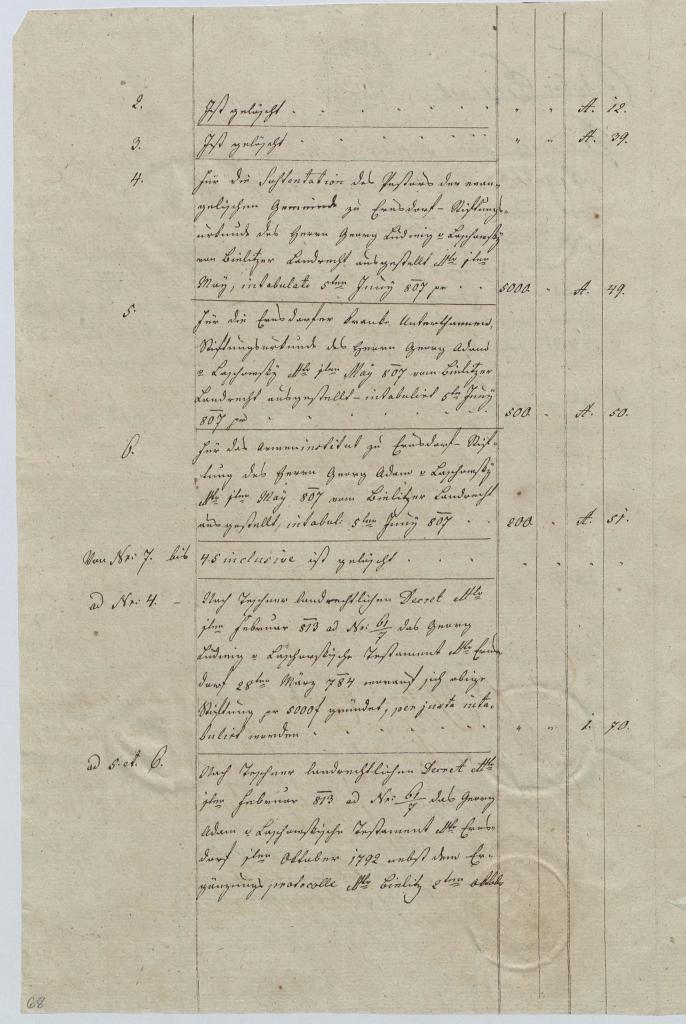 2. Ist gelöscht . . . . . . . " " A. 12.
3. Ist gelöscht . . . . . . . " " A. 39.
4. Für die Sustentation des Pastors der evan-
gelischen Gemeinde zu Ernsdorf – Stiftungs-
urkunde des Herrn Georg Ludwig v Laschowsky
vom Bielitzer Landrecht ausgestellt dto 1ten
May, intabulato 5ten Juny 807 pr . . 5000 " A. 49.
5. Für die Ernsdorfer kranke Unterthannen,
Stiftungsurkunde des Herrn Georg Adam
v Laschowsky dto 1ten May 807 vom Bielitzer
Landrecht ausgestellt – intabulirt 5ten Juny
807 pr . . . . . . 500 " A. 50.
6. Für das Armeninstitut zu Ernsdorf – Stif-
tung des Herrn Georg Adam v Laschowsky
dto 1ten May 807 vom Bielitzer Landrecht
ausgestellt, intabul: 5ten Juny 807 . . 200 " A. 51.
Von Nr: 7. bis 45 inclusive ist gelöscht . . . . " " " "
ad Nr: 4. – Nach Teschner landrechtlichen Decret dto
1ten Februar 813 ad Nr: 61/7 das Georg
Ludwig v Laschowskische Testament dto Erns
dorf 28ten März 784 worauf sich obige
Stiftung pr 5000f gründet, per juxta inta-
bulirt worden . . . . . " " 1. 70.
ad 5. et. 6. Nach Teschner landrechtlichen Decret dto
1ten Februar 813 ad Nr: 61/7 das Georg
Adam v Laschowskische Testament dto Erns-
dorf 1ten Oktober 1792 nebst dem Er-
gänzungs protocolle dto Bielitz 2ten Oktob
68